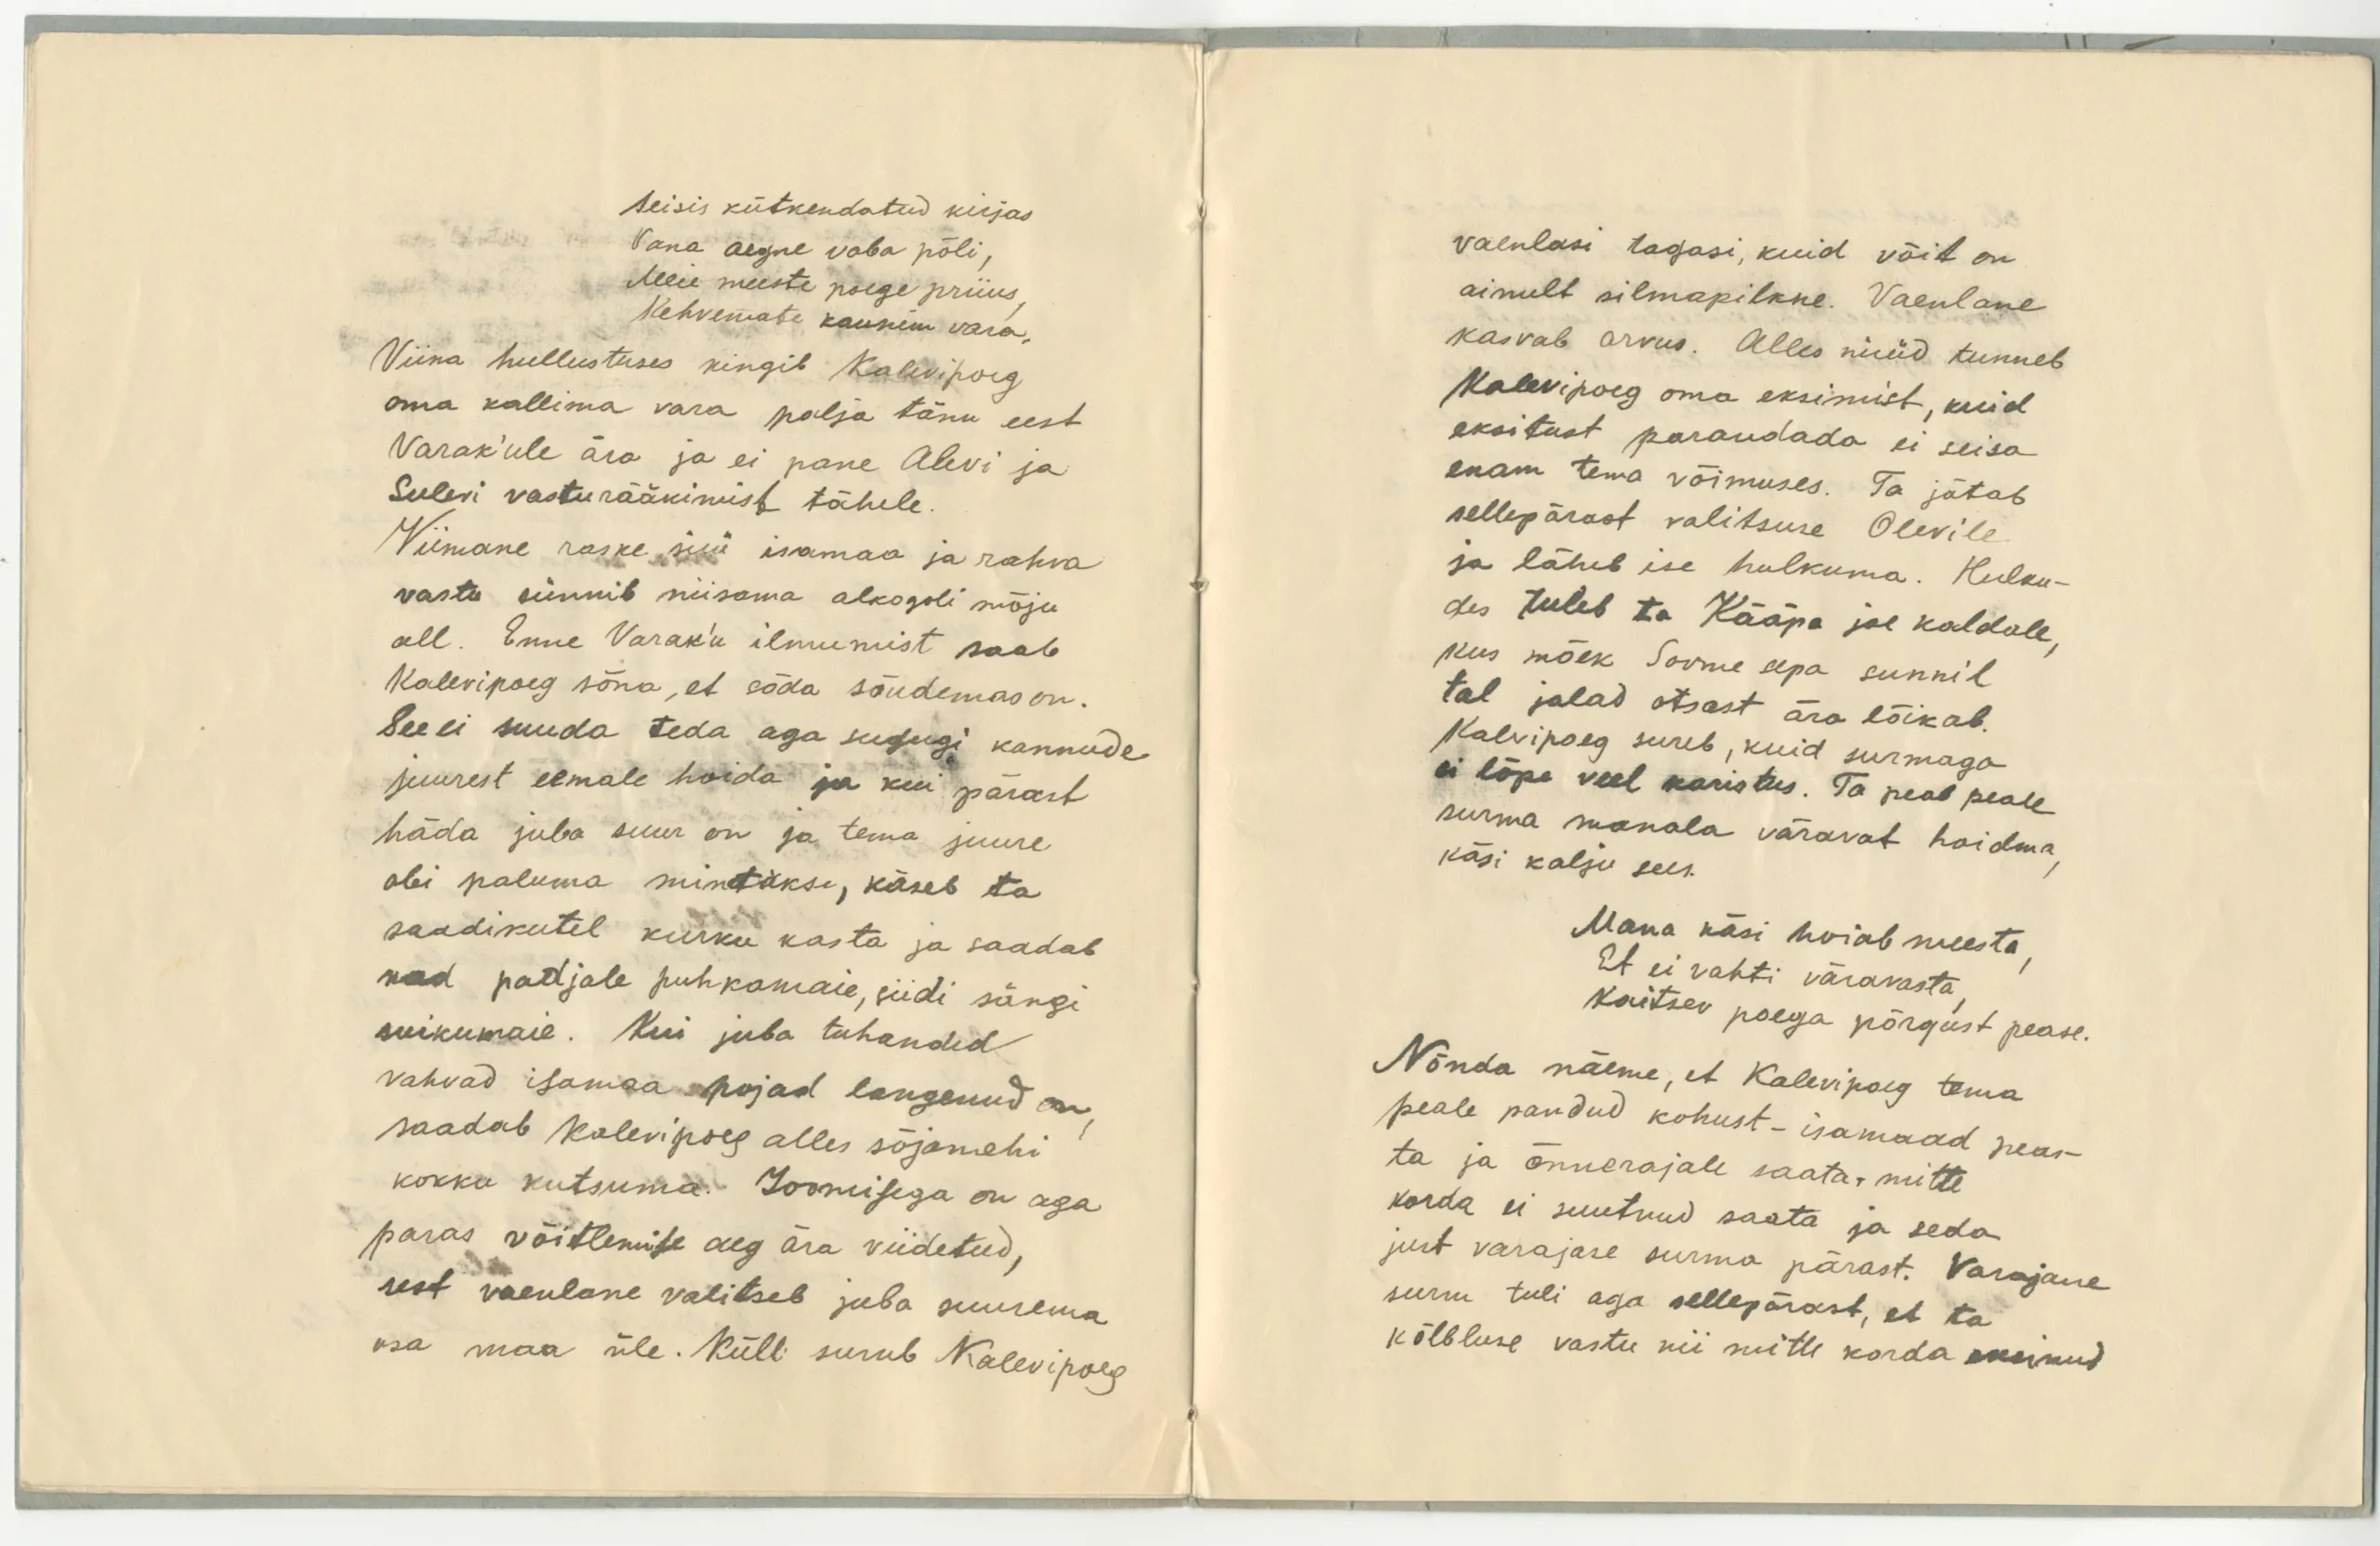 Seisis kütkendatud kirjas
Vana aegne vaba põli,
Meie meeste poege priius,
Kehvemate kaunim vara.
Viina hullustuses kingib Kalevipoeg
oma kallima vara palja tänu eest
Varak'ule ära ja ei pane Alevi ja
Sulevi vasturääkimist tähele.
Viimane raske süü isamaa ja rahva
vastu sünnib niisama alkogoli mõju
all. Enne Varak'u ilmumist saab
Kalevipoeg sõna, et sõda sõudemas on.
See ei suuda teda aga sugugi kannude
juurest eemale hoida ja kui pärast
häda juba suur on ja tema juure
abi paluma mintakse, käseb ta
saadikutel kurku kasta ja saadab
nad padjale puhkamaie, siidi sängi
suikumaie. Kui juba tuhanded
vahvad isamaa pojad langenud on,
saadab Kalevipoeg alles sõjamehi
kokku kutsuma. Joomisega on aga
paras võitlemise aeg ära viidetud,
sest vaenlane valitseb juba suurema
osa maa üle. Küll surub Kalevipoeg
vaenlasi tagasi, kuid võit on
ainult silmapilkne. Vaenlane
kasvab arvus. Alles nüüd tunneb
Kalevipoeg oma eksimist, kuid
eksitust parandada ei seisa
enam tema võimuses. Ta jätab
sellepärast valitsuse Olevile
ja läheb ise hulkuma. Hulku-
des tuleb ta Kääpa jõe kaldale,
kus mõek Soome sepa sunnil
tal jalad otsast ära lõikab.
Kalvipoeg sureb, kuid surmaga
ei lõpe veel karistus. Ta peab peale
surma manala väravat hoidma,
käsi kalju sees.
Mana käsi hoiab meesta,
Et ei vahti väravasta,
Kaitsev poega põrgust pease.
Nõnda näeme, et Kalevipoeg tema
peale pandud kohust - isamaad peas-
ta ja õnnerajale saata - mitte
korda ei suutnud saata ja seda
just varajase surma pärast. Varajane
surm tuli aga sellepärast, et ta
kõlbluse vastu nii mitte korda eksinud